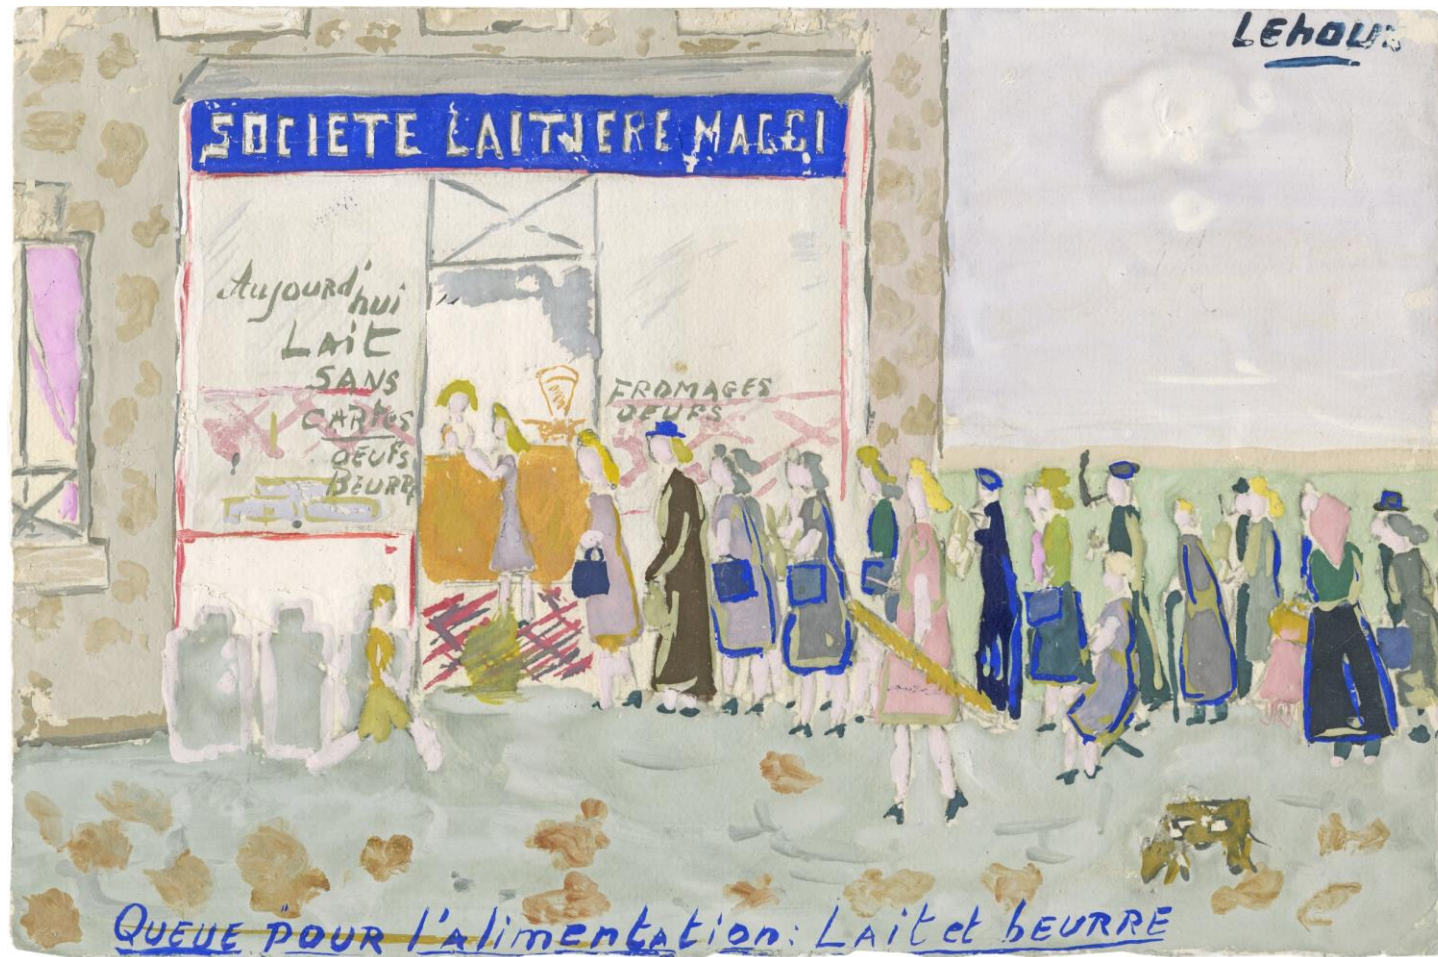 LEhOUx
SOCIETE LAITIERE MAGGI
Aujourd'hui
Lait
SANS
CARTES
OEUFS
BEURRE
FROMAGES
OEUFS
QUEUE pOUR l'alimentation: Lait et bEURRE